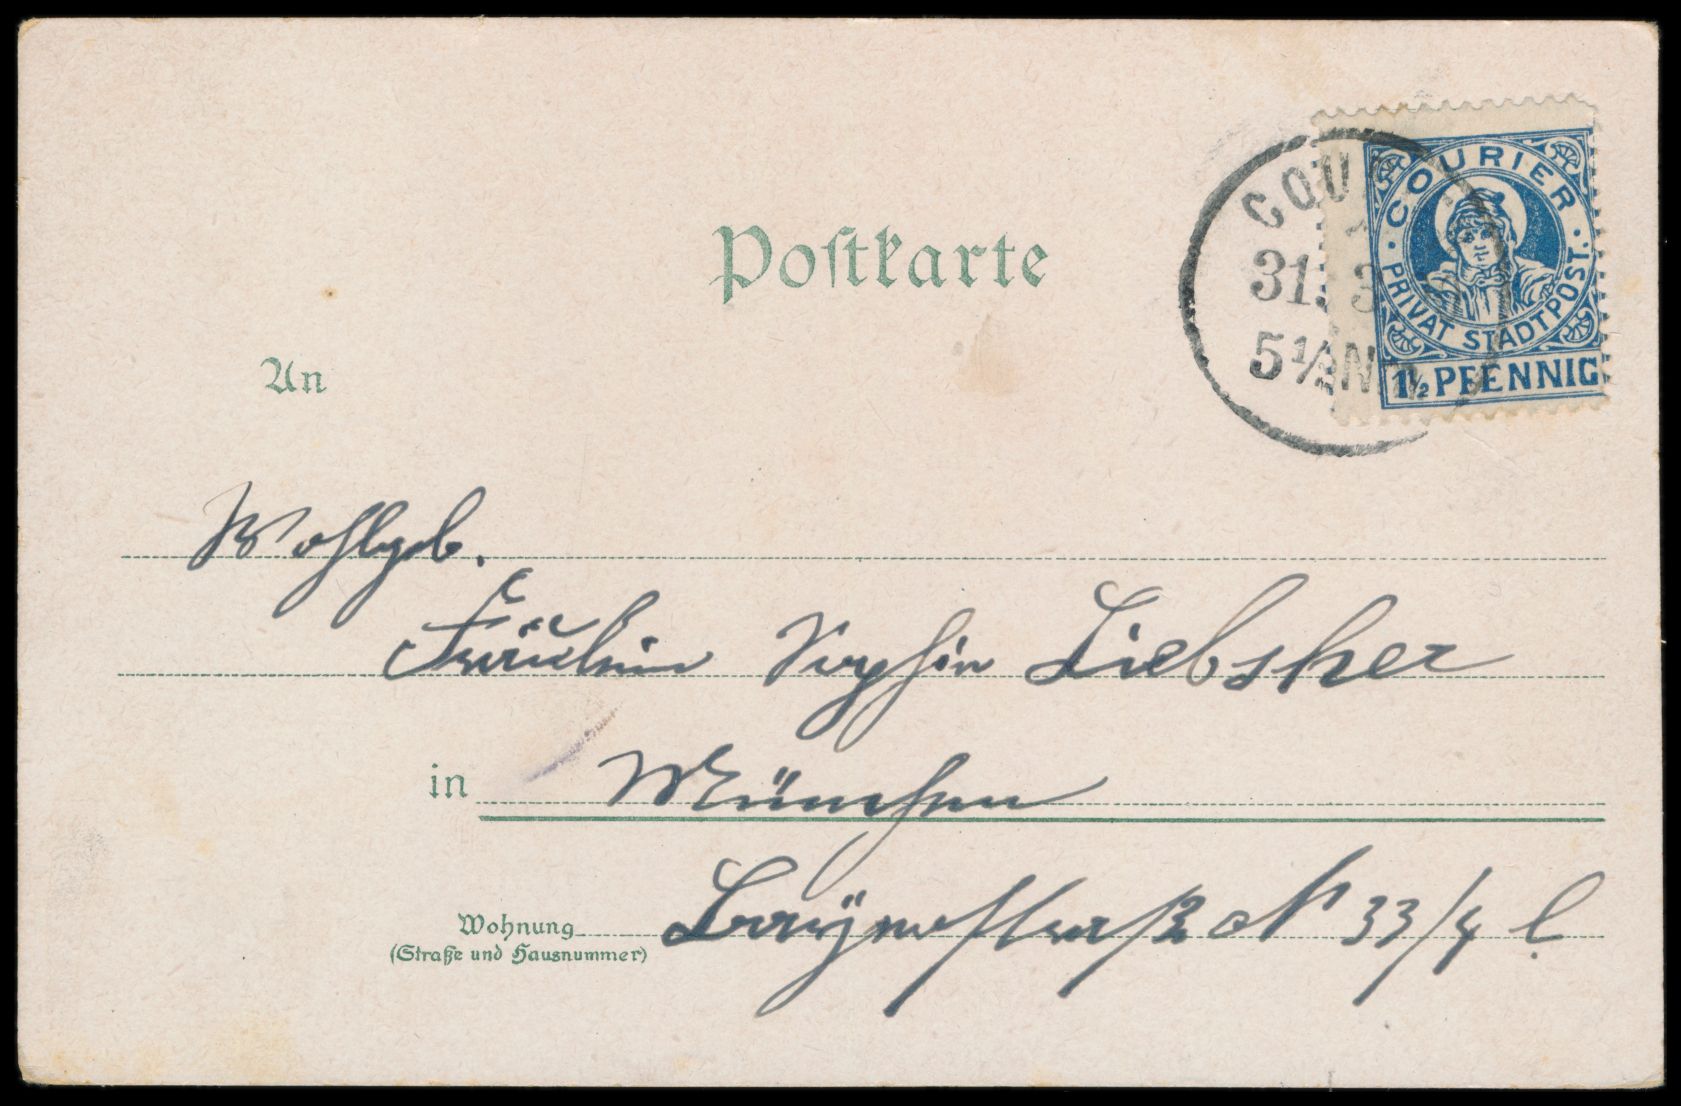 Postkarte
COURIER
PRIVAT STADTPOST.
1½ PFENNIG
COU
31. 3
5½ N
An
Wohlgeb.
Fräulein Sophie Liebsher
in München
Wohnung
(Straße und Hausnummer)
N 33/4 l.